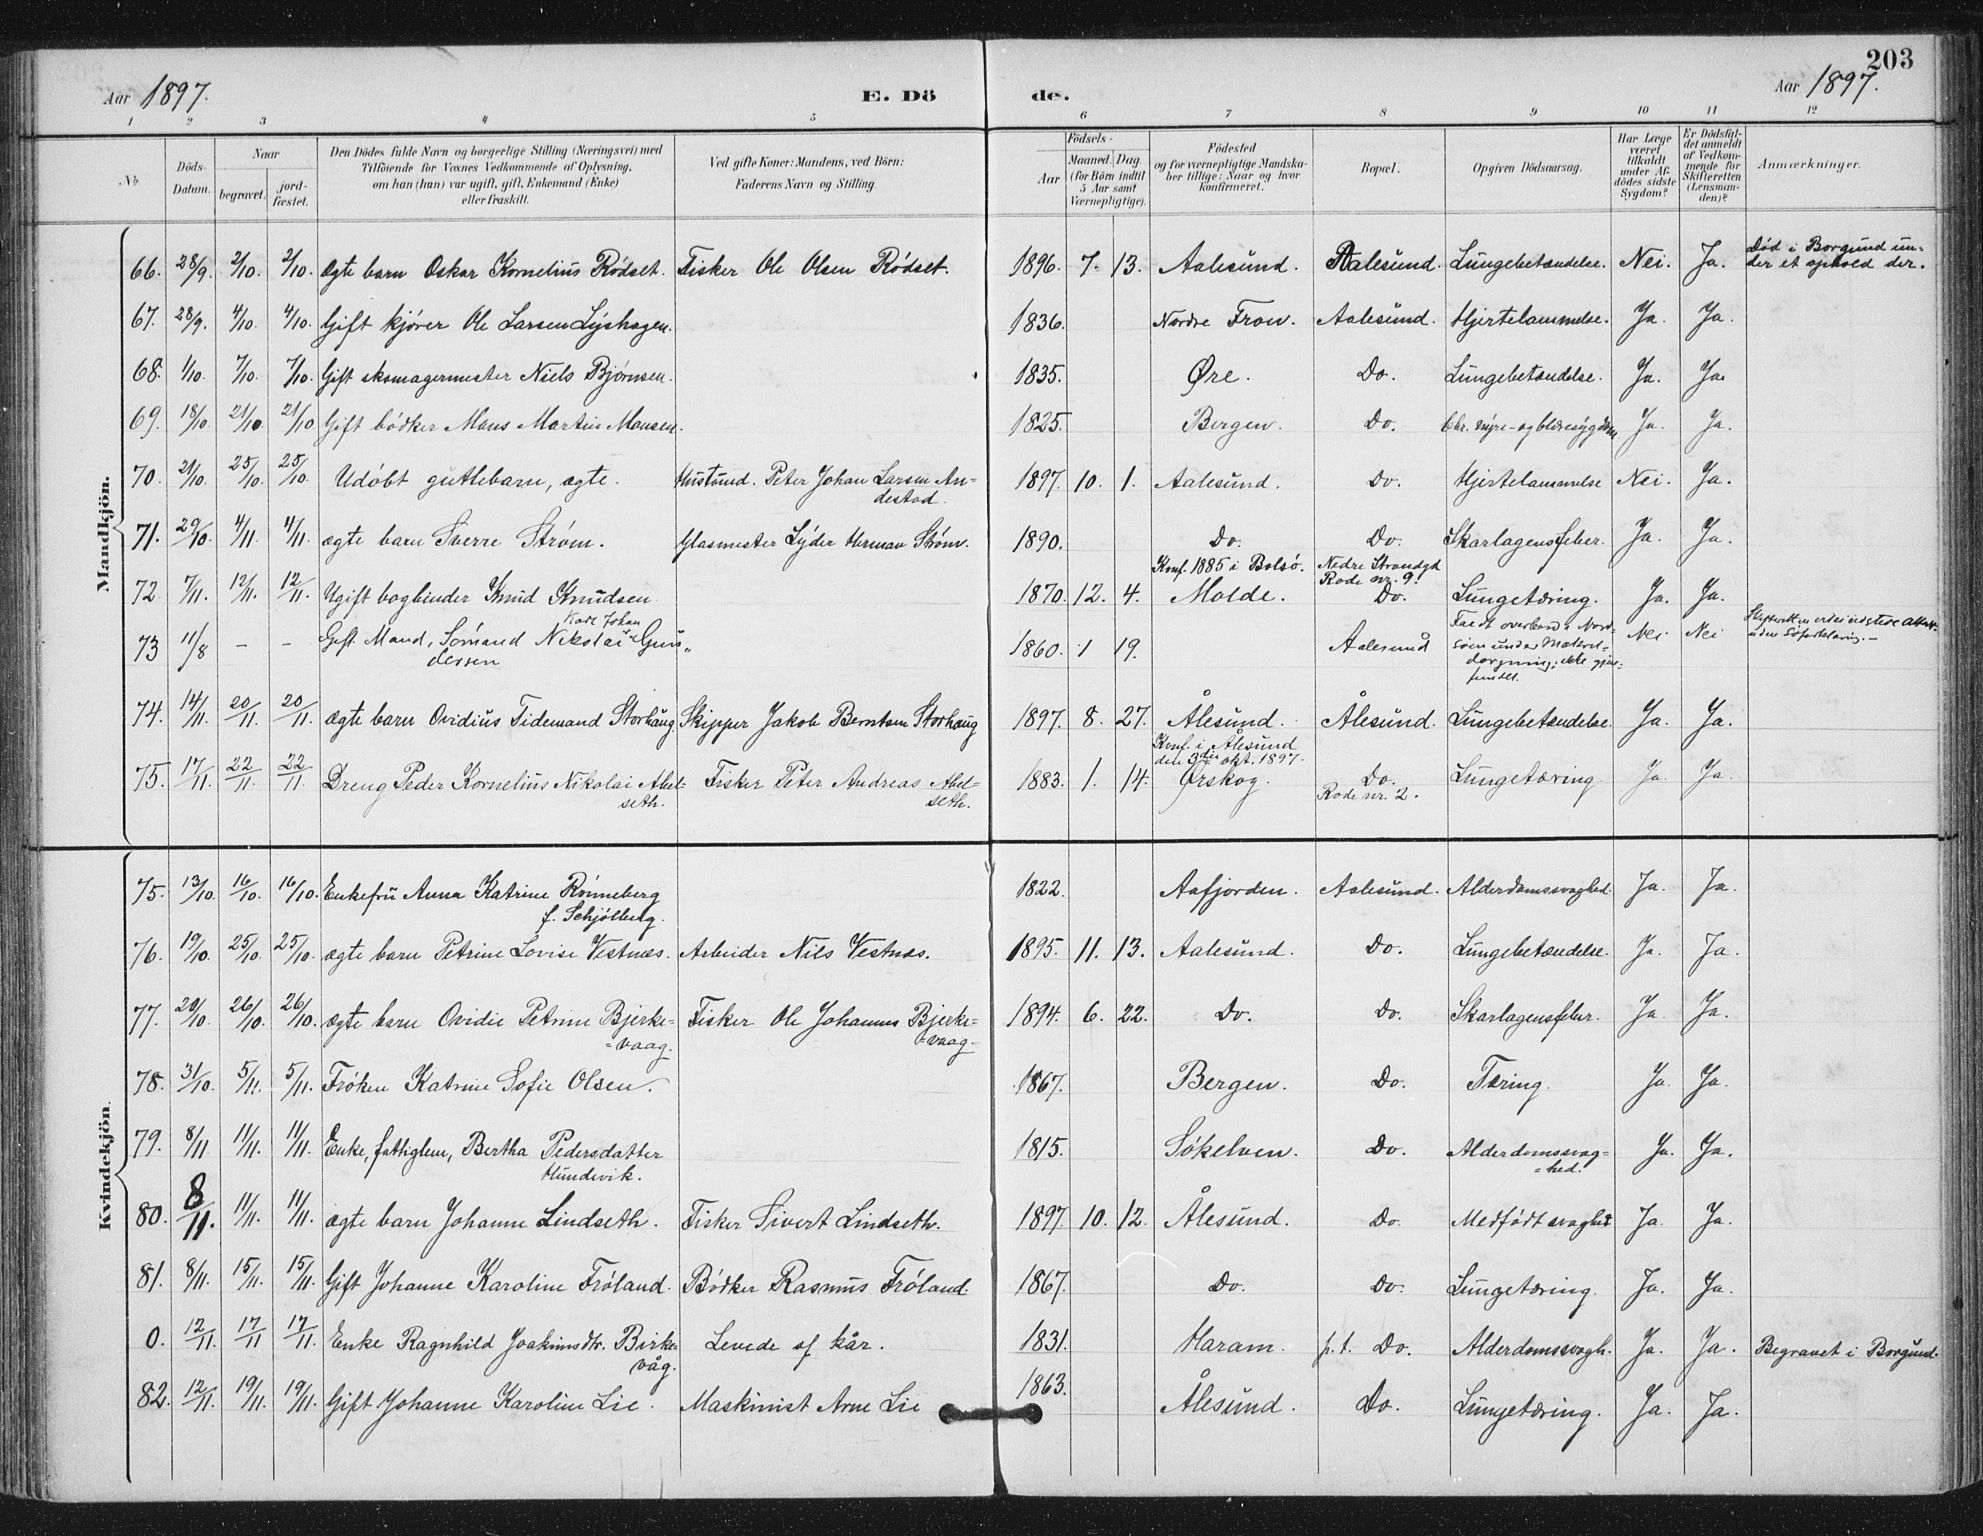 203
Aar 1897. E. Dö de. Aar 1897.
1 2 3 4 5 6 7 8 9 10 11 12
No
Döds-Datum.
Naar
begravet.
jord-fæstet.
Den Dödes fulde Navn og borgerlige Stilling (Næringsvei) med
Tilföiende for Voxnes Vedkommende af Oplysning,
om han (hun) var ugift, gift, Enkemand (Enke)
eller fraskilt.
Ved gifte Koner: Mandens, ved Börn:
Faderens Navn og Stilling.
Födsels-
Aar
Maaned. Dag.
(for Börn indtil
5 Aar samt
Værnepligtige).
Födested
og for værnepligtige Mandska-
ber tillige: Naar og hvor
konfirmeret.
Bopæl.
Opgiven Dödsaarsag.
Har Læge
været
tilkaldt
under Af-
dödes sidste
Sygdom?
Er Dödsfal-
det anmeldt
af Vedkom-
mende for
Skifteretten
(Lensman-
den)?
Anmærkninger.
Mandkjön.
66. 28/9. 2/10. 2/10. Ægte barn Oskar Kornelius Rødset. Fisker Ole Olsen Rødset. 1896. 7. 13. Aalesund. Aalesund. Lungebetændelse. Nei. Ja. Død i Borgund un-
der et ophold der.
67. 28/9. 4/10. 4/10. Gift kjører Ole Larsen Lyshagen. 1836. Nordre Fron. Aalesund. Hjertelammelse. Ja. Ja.
68. 1/10. 7/10. 7/10. Gift skomagermester Niels Bjørnsen. 1835. Øre. Do. Lungebetændelse. Ja. Ja.
69. 18/10. 21/10. 21/10 Gift bødker Mons Martin Monsen. 1825. Bergen. Do. Chr. nyre- og blæresygdom Ja. Ja.
70. 21/10. 25/10. 25/10. Udøbt guttebarn, ægte. Hustmd. Peter Johan Larsen An-
destad. 1897. 10. 1. Aalesund. Do. Hjertelammelse Nei. Ja.
71. 29/10. 4/11. 4/11. ægte barn Sverre Strøm. Glasmester Lyder Herman Strøm. 1890. Do. Do. Skarlagensfeber. Ja. Ja.
Konf. 1885 i Bolsø. Nedre Strandgd
Rode nr. 9.
72 7/11. 12/11. 12/11. Ugift bogbinder Knud Knudsen 1870. 12. 4. Molde. Do. Lungetæring. Ja. Ja.
Karl Johan
73 11/8 - - Gift Mand, Sømand Nikolai Gun-
dersen 1860. 1 19. Aalesund Faldt overbord i Nord-
søen under Makrel-
dorgning; ikke gjen-
fundet. Nei Nei
74. 14/11. 20/11. 20/11. Ægte barn Ovidius Tidemand Storhaug. Skipper Jakob Berntsen Storhaug 1897. 8. 27. Ålesund. Ålesund. Lungebetændelse. Ja. Ja.
Konf. i Ålesund
den 3die okt. 1897.
75. 17/11. 22/11. 22/11. Dreng Peder Kornelius Nikolai Abel-
seth. Fisker Peter Andreas Abel-
seth. 1883. 1. 14. Ørskog. Do.
Rode nr. 2. Lungetæring. Ja. Ja.
Kvindekjön.
75. 13/10. 16/10. 16/10. Enkefru Anna Katrine Rønneberg
f. Schjølberg. 1822. Aafjorden. Aalesund. Alderdomssvaghed. Ja. Ja.
76. 19/10. 25/10. 25/10. ægte barn Petrine Lovise Vestnæs. Arbeider Nils Vestnæs. 1895. 11. 13. Aalesund. Do. Lungebetændelse. Ja. Ja.
77. 20/10. 26/10. 26/10. ægte barn Ovidie Petrine Bjerke-
=vaag. Fisker Ole Johannes Bjerke-
=vaag. 1894. 6. 22. Do. Do. Skarlagensfeber. Ja. Ja.
78. 31/10. 5/11. 5/11. Frøken Katrine Sofie Olsen. 1867. Bergen. Do. Tæring. Ja. Ja.
79. 8/11 11/11. 11/11. Enke, fattiglem, Bertha Pedersdatter
Hundevik. 1815. Søkelven. Do. Alderdomssvag-
=hed. Ja. Ja.
80. 8/11. 11/11. 11/11. ægte barn Johanne Lindseth. Fisker Sivert Lindseth. 1897. 10. 12. Ålesund. Do. Medfødt svaghed Ja. Ja.
81. 8/11. 15/11. 15/11. Gift Johanne Karoline Frøland. Bødker Rasmus Frøland. 1867. Do. Do. Lungetæring. Ja. Ja.
0. 12/11. 17/11 17/11. Enke Ragnhild Joakimsdtr. Birke-
våg. Levede af kår. 1831. Haram. p.t. Do. Alderdomssvagh. Ja. Ja. Begravet i Borgund.
82. 12/11. 19/11. 19/11. Gift Johanne Karoline Lie. Maskinist Arne Lie 1863. Ålesund. Do. Lungetæring. Ja. Ja.